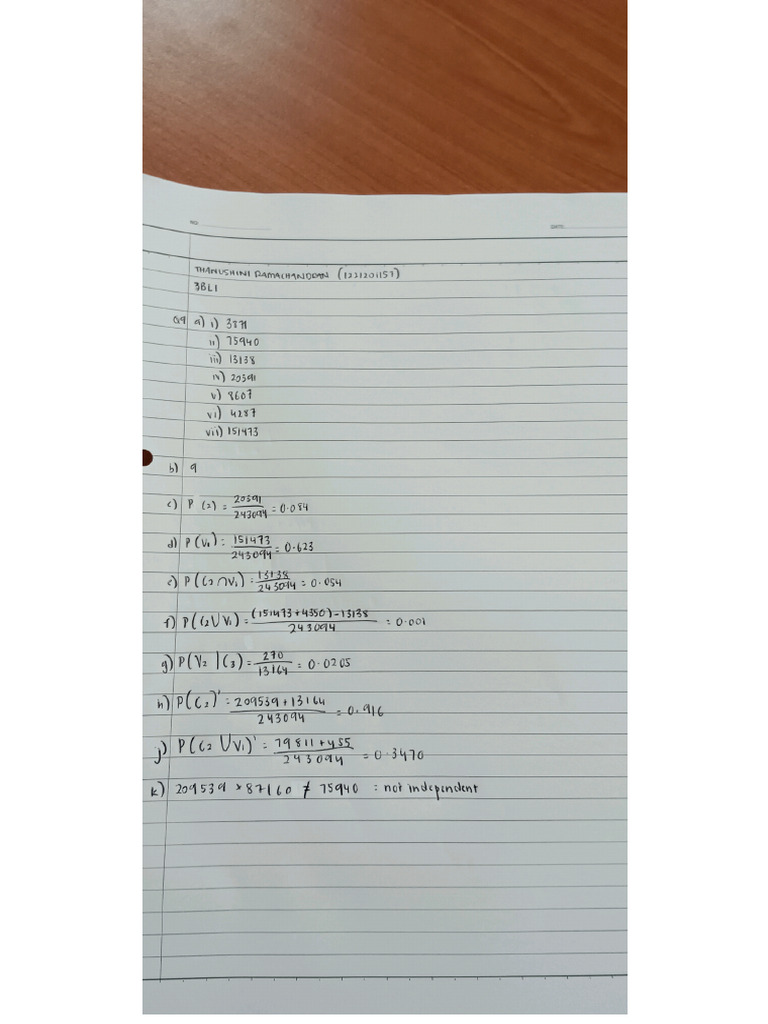 NO:
DATE:
THANUSHINI RAMACHANDRAN (1221201157)
3BL1
Q9 a) i) 3871
ii) 75940
iii) 13138
iv) 20391
v) 8607
vi) 4287
vii) 151473
b) 9
c) P (2) = 20391/243094 = 0.084
d) P(V1) = 151473/243094 = 0.623
e) P(C2∩V1) = 13138/243094 = 0.054
f) P(C2∪V1) = (151473+4350)-13138/243094 = 0.001
g) P(V2 | C3) = 270/13164 = 0.0205
h) P(C2)' = 209539+13164/243094 = 0.916
j) P(C2∪V1)' = 79811+455/243094 = 0.3470
k) 209539 × 87160 ≠ 75940 : not independent